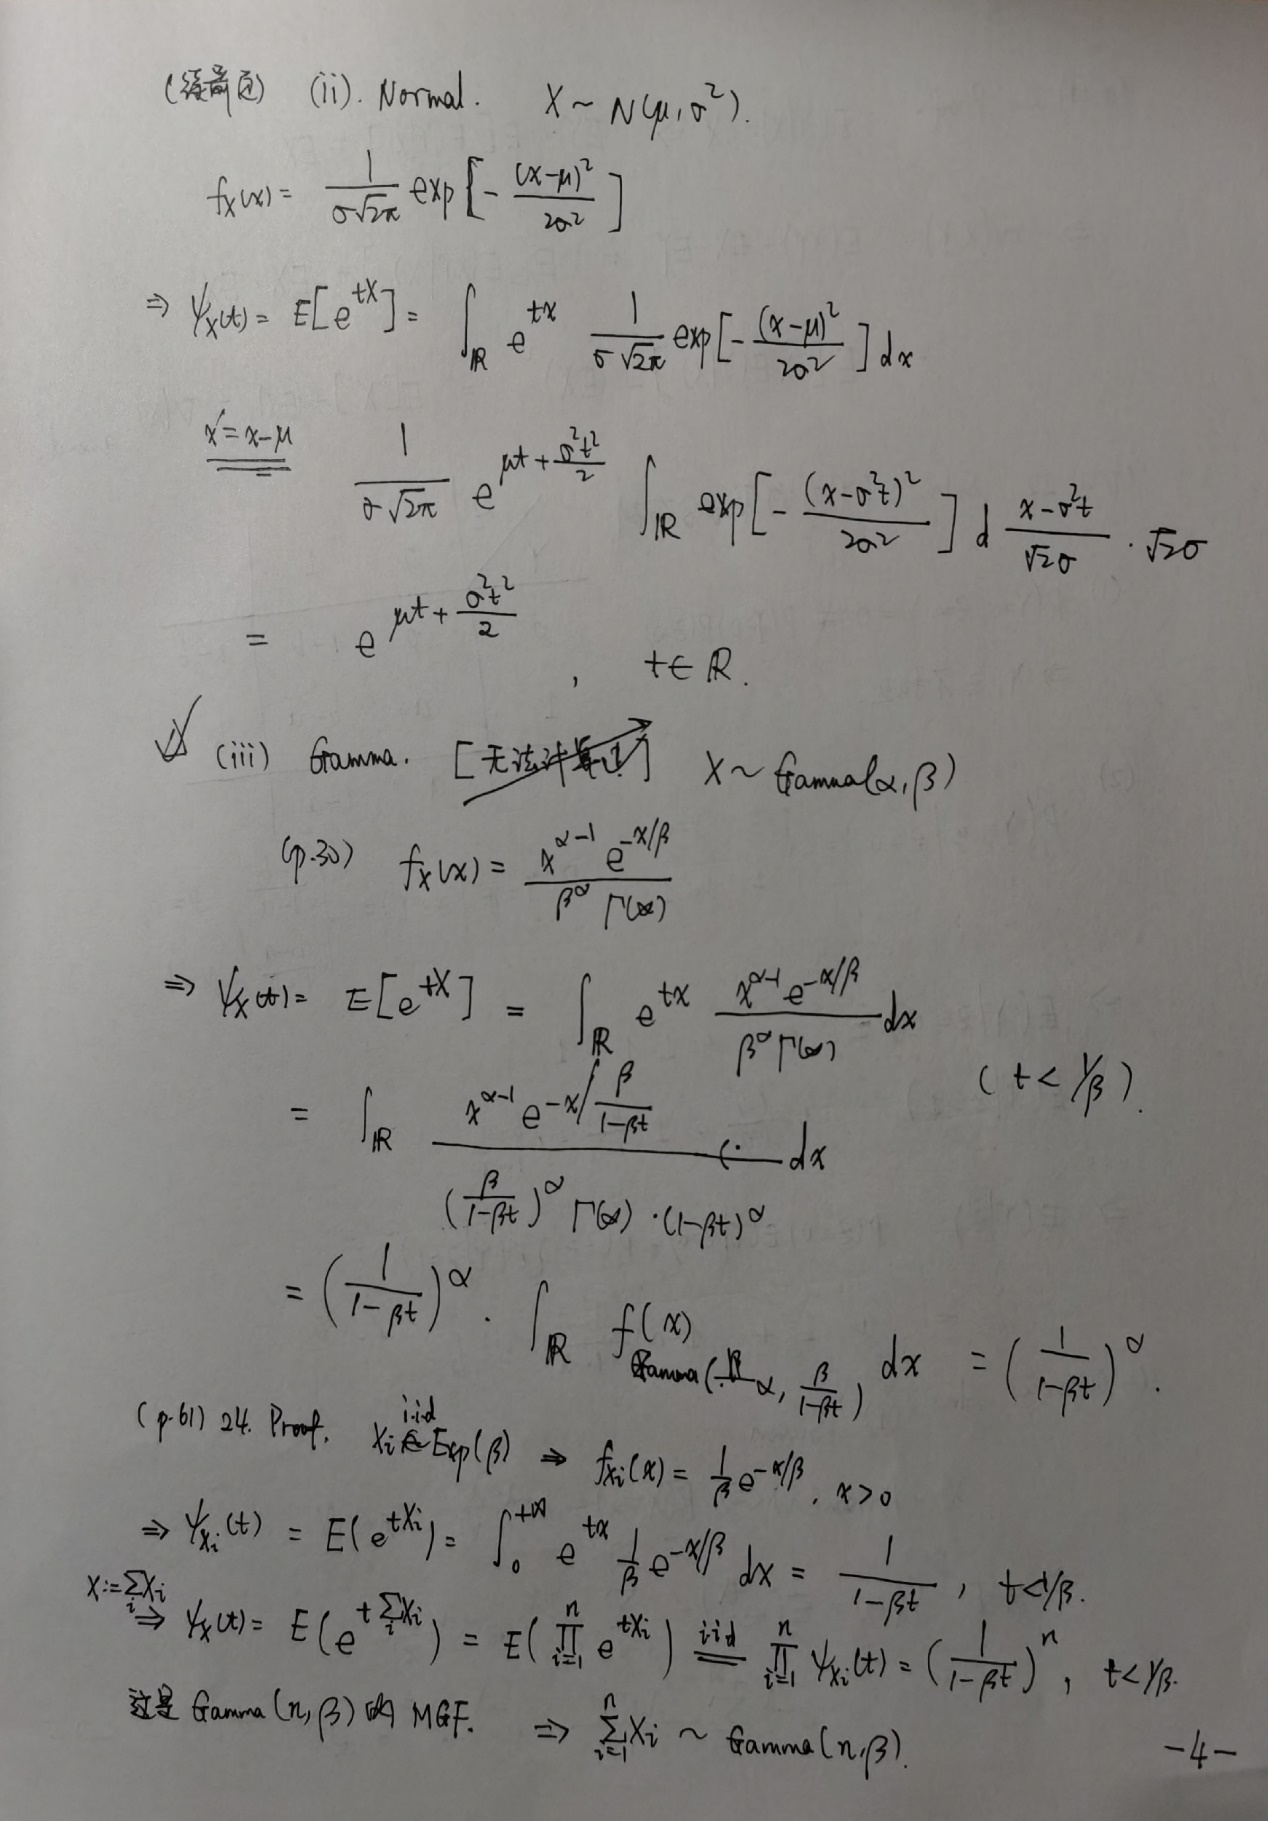 (续前页) (ii). Normal. X ~ N(μ, σ²).
f_X(x) = 1/(σ√2π) exp[-(x-μ)²/2σ²]
⇒ ψ_X(t) = E[e^{tX}] = ∫_ℝ e^{tx} 1/(σ√2π) exp[-(x-μ)²/2σ²] dx
x' = x-μ 1/(σ√2π) e^{μt + σ²t²/2} ∫_ℝ exp[-(x-σ²t)²/2σ²] d (x-σ²t)/(√2σ) · √2σ
= e^{μt + σ²t²/2}, t ∈ ℝ.
(iii) Gamma. [无法计算] X ~ Gamma(α, β)
(p.30) f_X(x) = x^{α-1} e^{-x/β} / (β^α Γ(α))
⇒ ψ_X(t) = E[e^{tX}] = ∫_ℝ e^{tx} x^{α-1} e^{-x/β} / (β^α Γ(α)) dx
(t < 1/β).
= ∫_ℝ x^{α-1} e^{-x/(β/(1-βt))} / ((β/(1-βt))^α Γ(α) · (1-βt)^α) dx
= (1/(1-βt))^α · ∫_ℝ f(x)_{Gamma(α, β/(1-βt))} dx = (1/(1-βt))^α.
(p.61) 24. Proof. X_i i.i.d ~ Exp(β) ⇒ f_{X_i}(x) = 1/β e^{-x/β}, x>0
⇒ ψ_{X_i}(t) = E(e^{tX_i}) = ∫_0^{+∞} e^{tx} 1/β e^{-x/β} dx = 1/(1-βt), t<1/β.
X := Σ_i X_i
⇒ ψ_X(t) = E(e^{tΣ_i X_i}) = E(∏_{i=1}^n e^{tX_i}) i.i.d = ∏_{i=1}^n ψ_{X_i}(t) = (1/(1-βt))^n, t<1/β.
这是 Gamma(n, β) 的 MGF. ⇒ Σ_{i=1}^n X_i ~ Gamma(n, β).
-4-